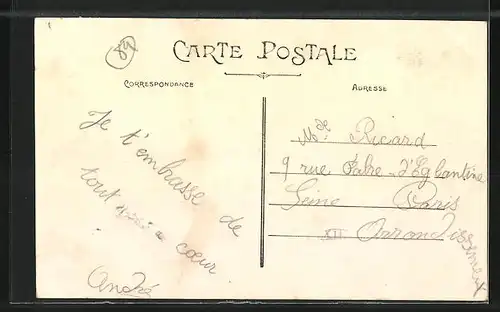 89
CARTE POSTALE
CORRESPONDANCE
ADRESSE
Je t'embrasse de
tout cœur
André
Mde Ricard
9 rue Fabre-d'Églantine
Seine Paris
XII Arrondissement